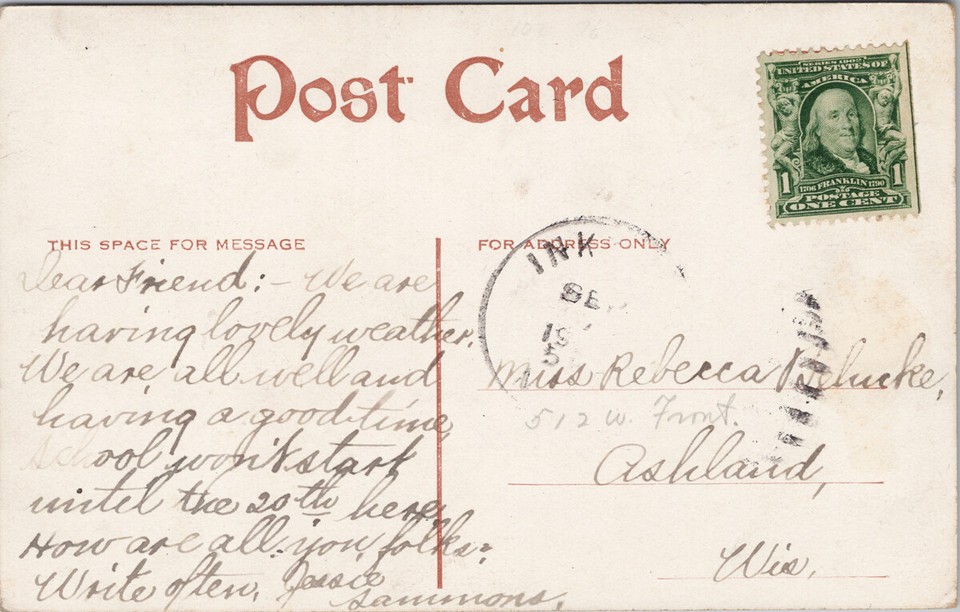 Post Card
SERIES 1902
UNITED STATES OF
AMERICA
1 1
1706 FRANKLIN 1790
POSTAGE
ONE CENT
THIS SPACE FOR MESSAGE
Dear Friend:- We are
having lovely weather.
We are all well and
having a good time,
School won't start
until the 20th here.
How are all you folks?
Write often, Jessie
Sammons.
FOR ADDRESS ONLY
INK
SE
Miss Rebecca
512 W. Front.
Ashland,
Wis.